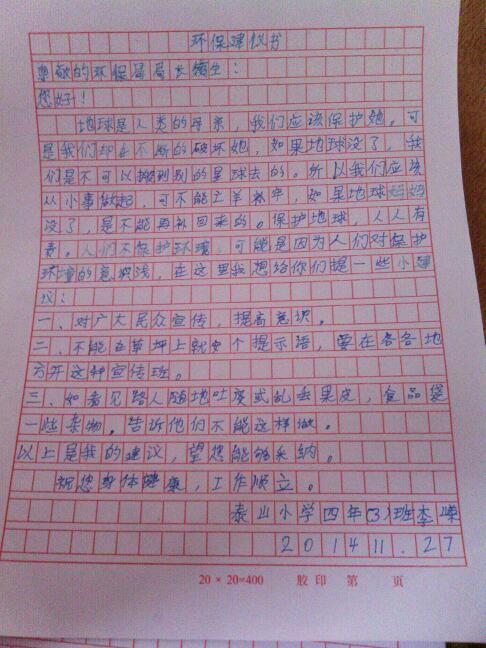 环保建议书
尊敬的环保局局长先生：
您好！
地球是人类的母亲，我们应该保护她。可
是我们却在不断的破坏她，如果地球没了，我
们是不可以搬到别的星球去的。所以我们应该
从小事做起，可不能亡羊补牢，如果地球妈妈
没了，是不能再补回来的。保护地球，人人有
责。人们不保护环境，可能是因为人们对保护
环境的意识浅，在这里我想给你们提一些小建
议：
一、对广大民众宣传，提高意识。
二、不能在草坪上就安个提示语，要在各各地
方开这种宣传班。
三、如看见路人随地吐痰或乱丢果皮，食品袋
一些杂物。告诉他们不能这样做。
以上是我的建议，望您能够采纳。
祝您身体健康，工作顺立。
泰山小学四年(3)班李
201411.27
20×20=400 胶印 第 页